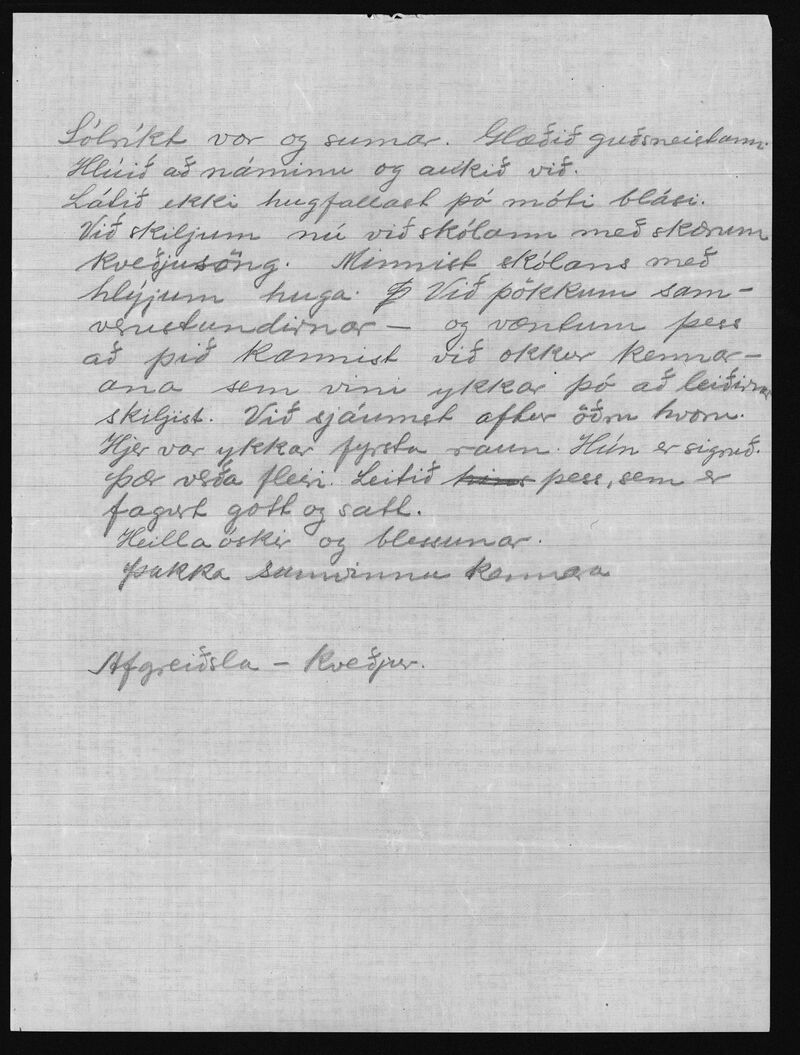 Sólríkt vor og sumar. Glæðið guðsneistann.
Hlúið að náminu og aukið við.
Látið ekki hugfallast þó móti blási.
Við skiljum nú við skólann með skærum
kveðjusöng. Minnist skólans með
hlýjum huga. Við þökkum sam-
verustundirnar – og væntum þess
að þið kannist við okkur kennar-
ana sem vini ykkar þó að leiðirnar
skiljist. Við sjáumst aftur öðru hvoru.
Hjer var ykkar fyrsta raun. Hún er sigruð.
Þær verða fleiri. Leitið hins þess, sem er
fagurt gott og satt.
Heillaóskir og blessunar.
Þakka samvinnu kennara
Afgreiðsla – Kveðjur.